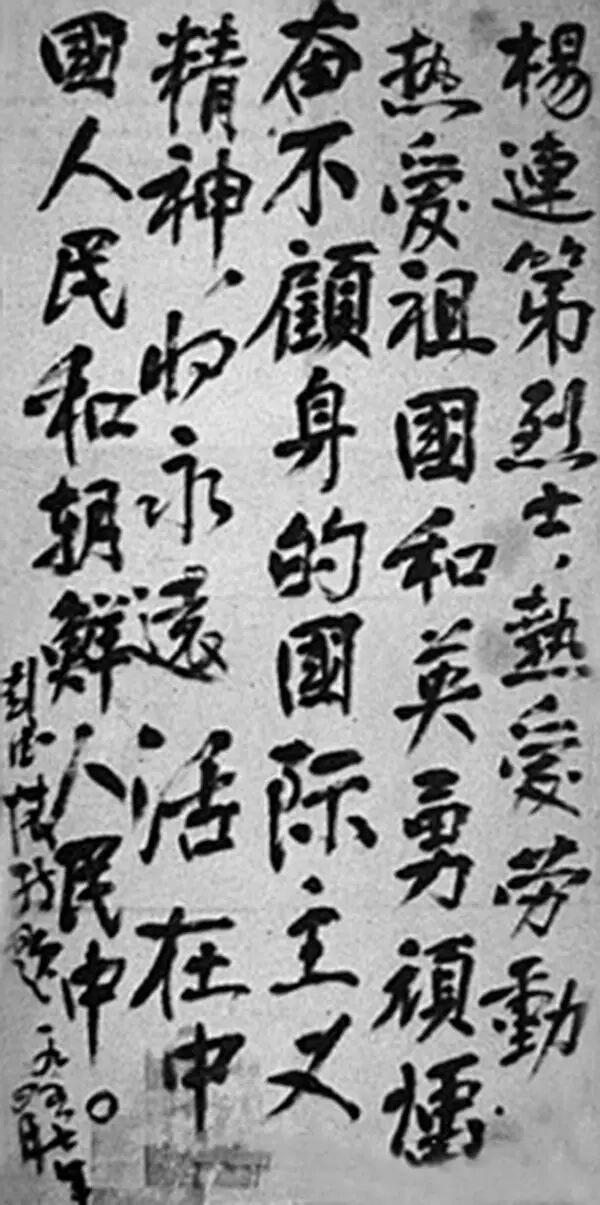 楊連第烈士，熱愛劳動
热愛祖國和英勇頑强
奋不顧身的國际主义
精神，将永遠活在中
國人民和朝鮮人民中。
彭德懷敬题 一九五七年